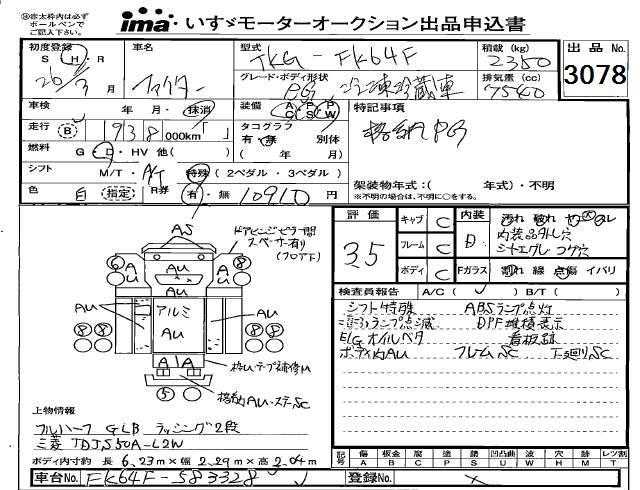 ※赤太枠内は必ず
ボールペンで
ご記入下さい。
ima いすゞモーターオークション出品申込書
初度登録 S H R 26年3月
車名 ファイター
型式 TKG-FK64F
積載(kg) 2350
出品No. 3078
グレード・ボディ形状 PG 冷凍冷蔵車
排気量(cc) 7540
車検 年・月・抹消
装備 A/C P/S P/W
特記事項
格納PG
走行 B 1938 000km「 」
タコグラフ 有・無 別体
( 年 月)
燃料 G・D・HV 他( )
シフト M/T・A/T 特殊(2ペダル・3ペダル)
架装物年式:( 年式)・不明
※不明の場合は、不明に○をする。
色 白 指定 R券 有・無 10910円
評価 3.5
キャブ C
フレーム C
ボディ C
内装 D
汚れ 破れ ヤニ ダレ
内装品外し穴
シートエグレ コゲ穴
Fガラス 割れ 線 点傷 イバリ
検査員報告 A/C( ) B/T( )
シフト特殊 ABSランプ点灯
ランプ点滅 DPF堆積表示
E/Gオイルベタ 看板跡
ボディ内AU フレームSC 下回りSC
AS
ドアヒンジピラー間
スペーサー有り
(フロア下)
6 AU AU AU 8
AU
AU アルミ AU
8 8 AU 8 8
A A
枠Uテープ補修M
格納AU・ステーSC
5
上物情報
フルハーフ GLB ラッシング2段
三菱 TDJS50A-L2W
ボディ内寸約 長 6.23m×幅 2.29m×高 2.04m
記号 傷 A 板金 B 腐 C 塗 P 錆 S 凹凸曲 U 波 W 穴 H 跡 M レツ割 T
車台No. FK64F-583328
登録No. ×